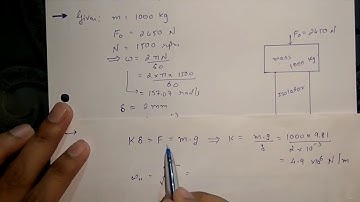 Given: m = 1000 kg
F₀ = 2450 N
N = 1500 rpm
⇒ ω = 2πN / 60
= 2×π×1500 / 60
= 157.07 rad/s
δ = 2 mm
F₀ = 2450 N
mass
1000 kg
isolator
Kδ = F = m·g ⇒ K = m·g / δ = 1000×9.81 / 2×10⁻³
= 4.9 ×10⁶ N/m
ωₙ = √ =